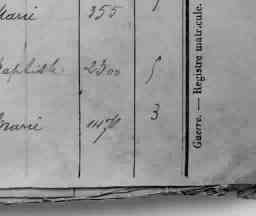 Marie 355
Baptiste 2300 5
Marie 3
Guerre. — Registre matricule.